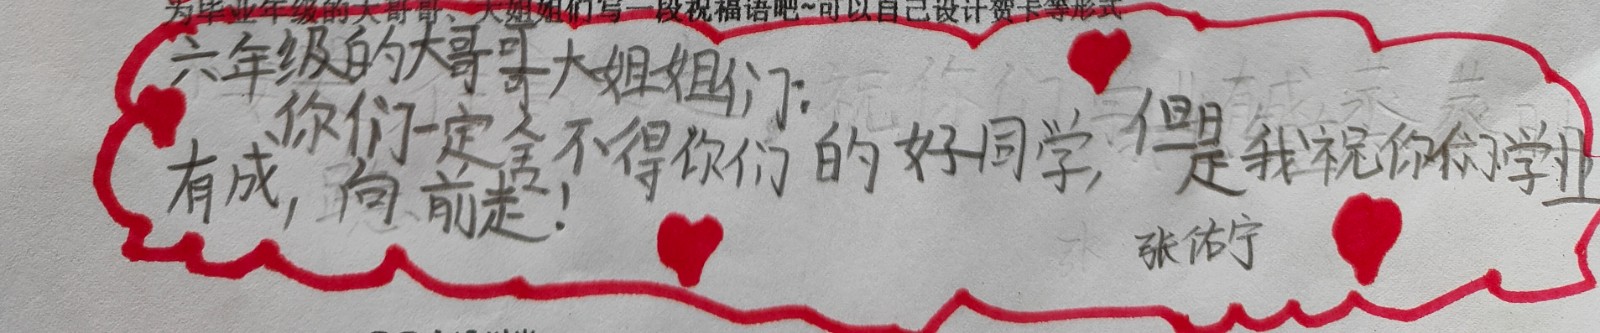 为毕业年级的大哥哥、大姐姐们写一段祝福语吧~可以自己设计贺卡等形式
六年级的大哥哥大姐姐们:
你们一定舍不得你们的好同学,但是我祝你们学业
有成,向前走!
张佑宁